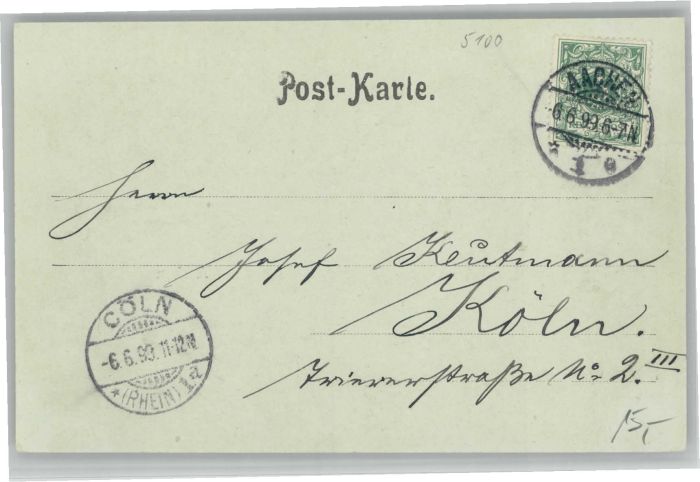 5100
Post-Karte.
AACHEN
6.6.99.6-7N.
* 1 e
Herrn
Josef Keutmann
Köln.
Triererstraße No. 2.III
CÖLN
-6.6.99.11-12N.
*(RHEIN) 1a
15,-